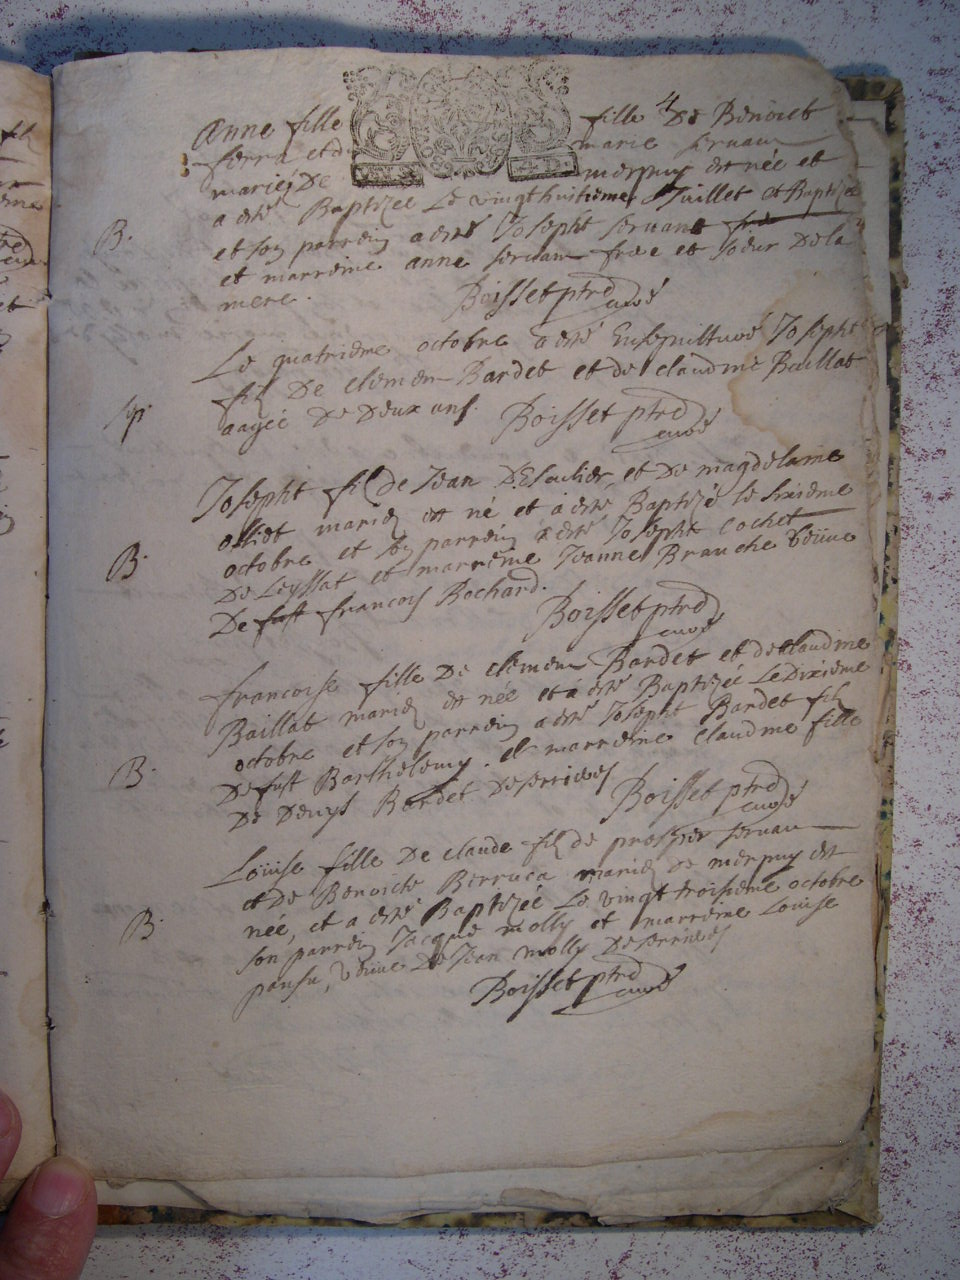 4
Anne fille fille De Benoict
ferra et de marie servan
mariés De merpuy est née et
a esté Baptizée Le vingthuitieme Juillet et Baptizée
B. et son parrein a esté Joseph servant
et marreine anne servan frere et soeur De la
mere. Boisset ptre
curé
Le quatrieme octobre a esté Ensepulturé Joseph
fils De clemen Bardet et de claudme Baillat
sp. aagée De Deux ans. Boisset ptre
curé
Joseph fils de Jean et De magdelaine
olliet mariés est né et a esté Baptizé le sixieme
B. octobre et son parrein a esté Joseph Cochet
De Leyssat et marreine Jeanne Branche veüve
De fust francois Bochard. Boisset ptre
curé
francoise fille De clemen Bardet et de claudme
Baillat mariés est née et a esté Baptizée Le Dixieme
octobre et son parrein a esté Joseph Bardet fils
B. De fust Barthelemy. et marreine claudme fille
De Denys Bardet De serrieres Boisset ptre
curé
Loüise fille De claude fils de prosper servan
et De Benoicte Berruca mariés De merpuy est
née, et a esté Baptizée Le vingt troisieme octobre
B. son parrein Jacque molly et marreine Louise
pansu, veüve De Jean molly De serrieres
Boisset ptre
curé